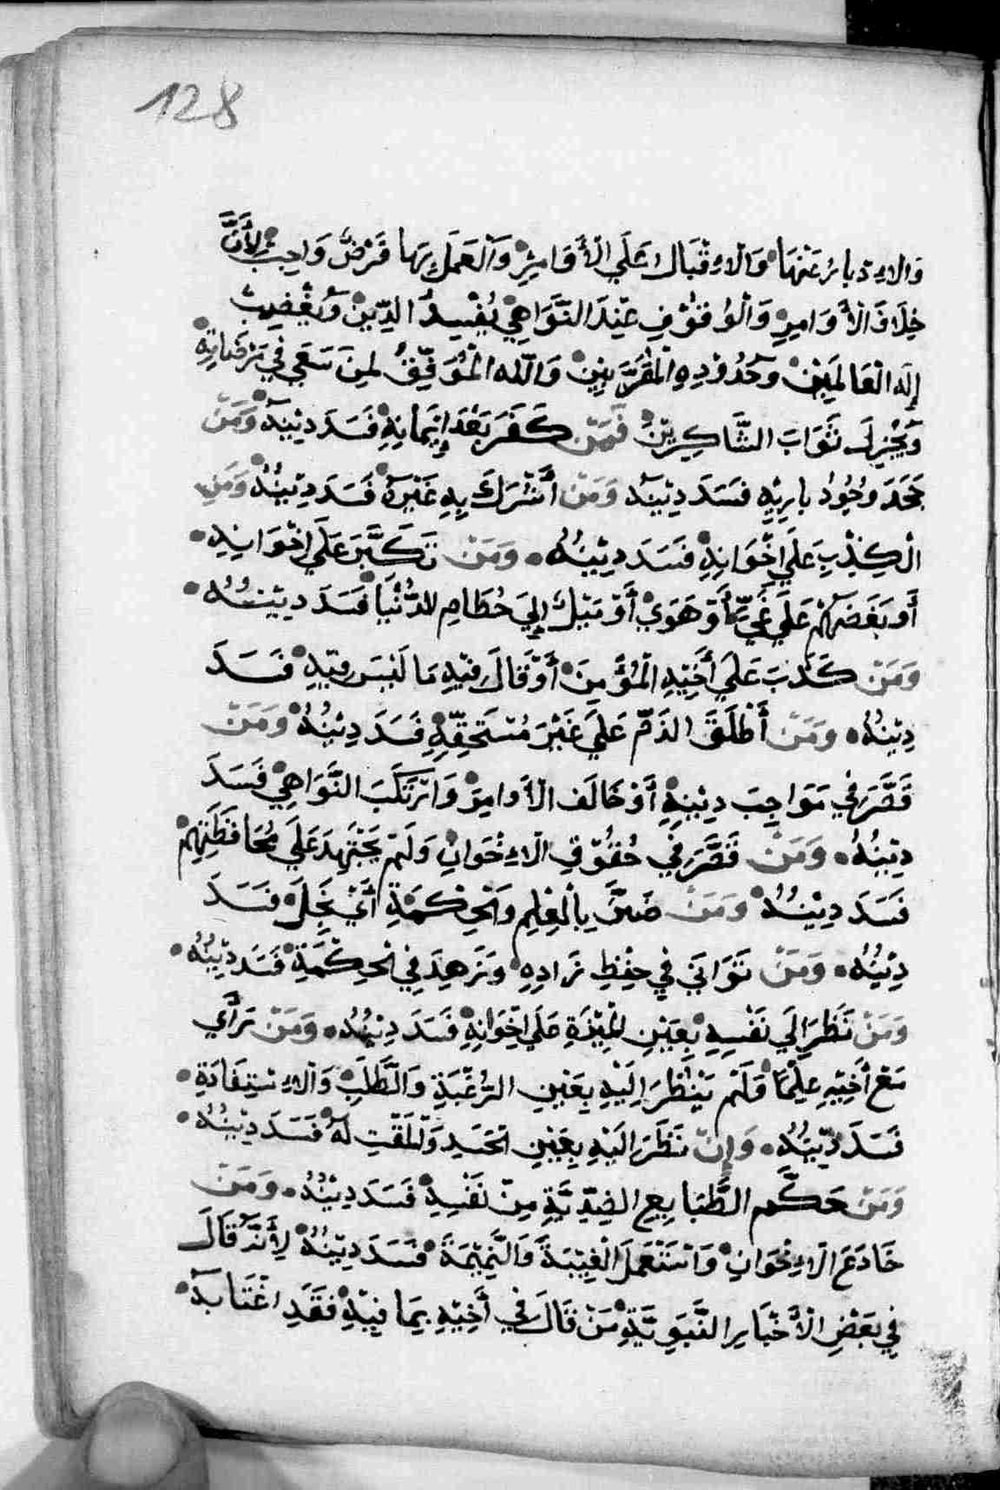 128
وَالاِدْبارُ عَنْهَا وَالاِقْبَالُ عَلَي الأَوَامِرِ وَالعَمَلِ بِهَا فَرْضٌ وَاجِبٌ لِأَنَّ
خِلَافَ الْأَوَامِرِ وَالْوُقُوْفِ عِنْدَ النَّوَاهِيْ يُفْسِدُ الدِّيْنَ وَيُغْضِبُ
إِلَه الْعَالَمِيْنَ وَحُدُوْدِهِ الْمُقَرَّبِيْنَ وَاللّه الْمُوَفِّقُ لِمَنْ سَعَي فِي مَرْضَاتِهِ
وَيُجْزِلُ ثَوَابَ الشَّاكِرِيْنَ فَمَنْ كَفَرَ بَعْدَ إِيْمَانِهِ فَسَدَ دِيْنُهُ وَمَنْ
جَحَدَ وُجُوْدُ بارِيْهِ فَسَدَ دِيْنُه وَمَنْ أَشْرَكَ بِهِ غَيْرَهُ فَسَدَ دِيْنُهُ وَمَنِ
الْكِذْبِ عَلَي اخْوَانِهِ فَسَدَ دِيْنُهُ • وَمَنْ تَكَبَّرَ عَلَي اِخْوَانِهِ •
أَو بَغَضَهُمْ عَلَي غَيٍّ أَوْ هَوَيْ أَوْ مَيْلٍ إِلَي حُطَامِ الدُّنْيَا فَسَدَ دِيْنُهُ •
وَمَنْ كَذَبَ عَلَي أَخِيْهِ الْمُؤْمِنَ أَوْ قَالَ فِيْهِ مَا لَيْسَ فِيْهِ فَسَدَ
دِيْنُهُ • وَمَنْ أَطْلَقَ الذَمَّ عَلَي غَيْرِ مُسْتَحِقِّهِ فَسَدَ دِيْنُهُ وَمَنْ
قَصَّرَ فِي مَوَاجِبَ دِيْنِهِ أَوْ خَالَفَ الأَوامِرَ وَارْتَكَبَ النَّوَاهِيْ فَسَدَ
دِيْنُهُ • وَمَنْ قَصَّرَ فِي حُقُوْقِ الْاِخْوَانِ وَلَمْ يَجْتَهِدَ عَلَي مُحَافَظَتِهِمْ
فَسَدَ دِيْنُهُ وَمَنْ ضَنَّ بِالْعِلْمِ وَالحِكْمَةِ أَيْ بَخِلَ فَسَدَ
دِيْنُهُ • وَمَنْ تَوَانَي فِي حِفْظِ زَادِهِ وَزَهِدَ فِي الحِكْمَةِ فَسَدَ دِيْنُهُ •
وَمَنْ نَظَرَ اِلَي نَفْسِهِ بِعَيْنِ الْمِيْزَةِ عَلَي اِخْوَانِهِ فَسَدَ دِيْنُهُ • وَمَنْ رَأَي
مَعْ أَخِيْهِ عِلْمًا وَلَمْ يَنْظُرَ اِلَيْهِ بِعَيْنِ الرُغْبَةِ وَالطَّلَبِ وَالاِسْتِفَادَةِ •
فَسَدَ دِيْنُهُ • وَاِنْ نَظَرَ اِلَيْهِ بِعَيْنِ الحَسَدِ وَالْمَقْتِ لَهُ فَسَدَ دِيْنُهُ •
وَمَنْ حَكَّم الطَّبَايِعِ الضِدِّيَّةِ مِنْ نَفْسِهِ فَسَدَ دِيْنُهُ • وَمَنْ
خَادَعَ الْاِخْوَانِ وَاسْتَعْمَلَ الْغِيْبَةَ وَالنَّمِيْمَةَ فَسَدَ دِيْنُهُ لِأَنَّهُ قَالَ
فِي بَعْضِ الْأَخْبَارِ النَّبَوِيَّةِ مَنْ قَالَ فِي أَخِيْهِ بِمَا فِيْهِ فَقَدِ اغْتَابَهُ •